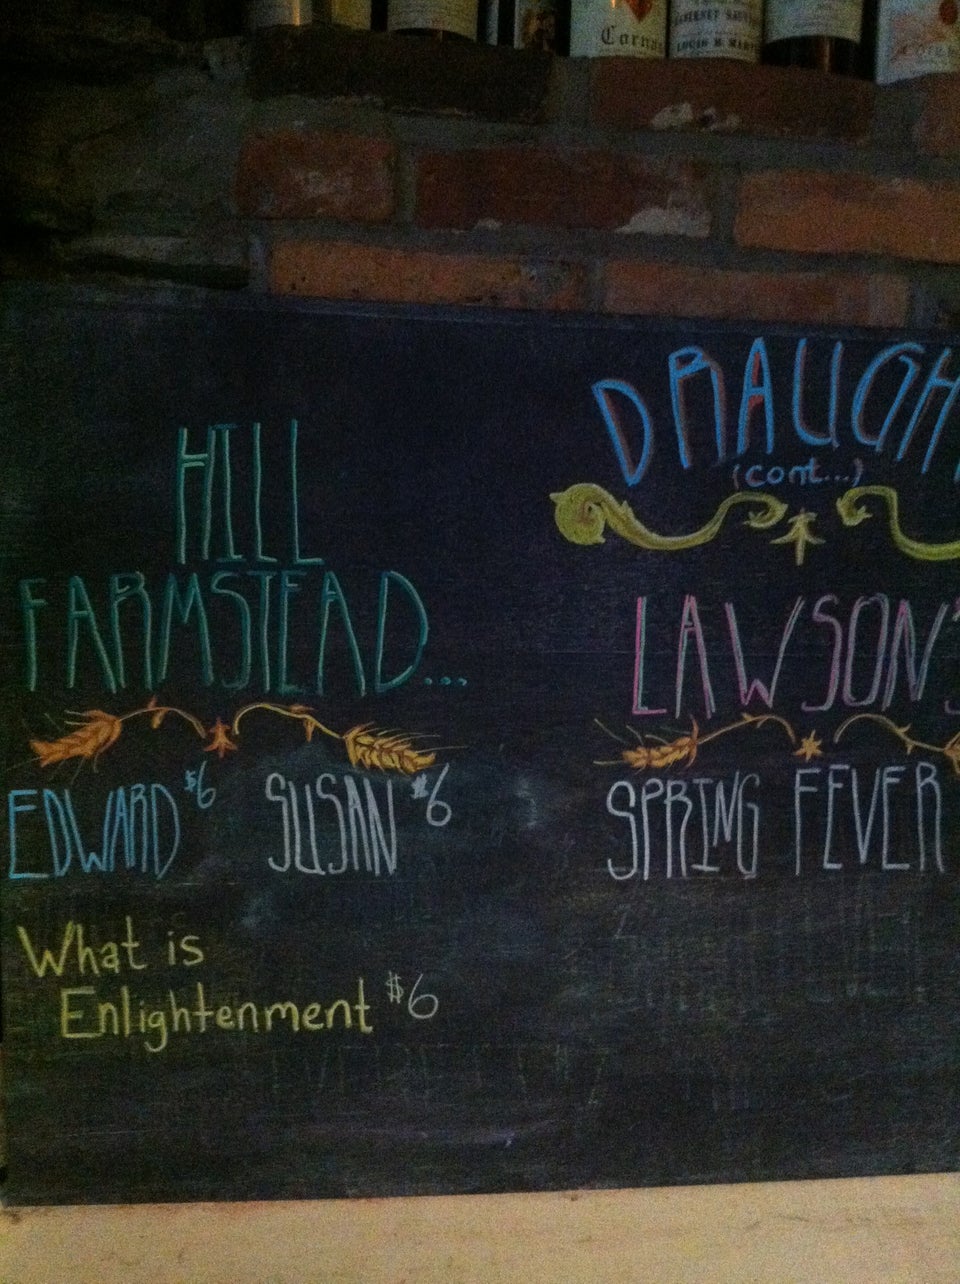 Cornas
CABERNET SAUV
LOUIS M MART
DRAUGH
(cont...)
HILL
FARMSTEAD...
EDWARD $6 SUSAN $6
What is
Enlightenment $6
LAWSON'S
SPRING FEVER